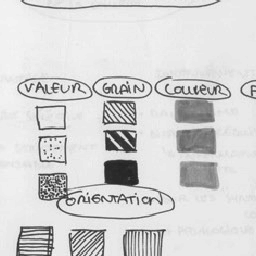 VALEUR GRAIN COULEUR
ORIENTATION